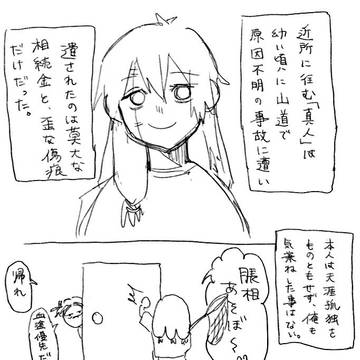 近所に住む「真人」は
幼い頃に山道で
原因不明の事故に遭い
遺されたのは莫大な
相続金と、歪な傷痕
だけだった。
本人は天涯孤独を
ものともせず、俺も
気兼ねした事はない。
脹相
あそぼ〜
帰れ
血塗優先だ